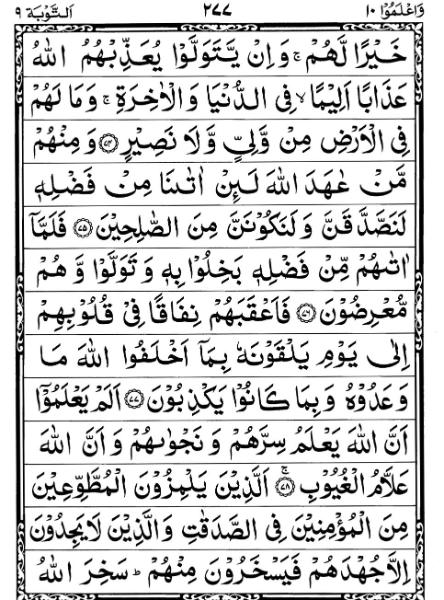 وَاعْلَمُوْٓا ١٠ ٢٧٧ اَلتَّوْبَة ٩
خَيْرًا لَّهُمْ ۚ وَاِنْ يَّتَوَلَّوْا يُعَذِّبْهُمُ اللّٰهُ
عَذَابًا اَلِيْمًا ۙ فِى الدُّنْيَا وَالْاٰخِرَةِ ۚ وَمَا لَهُمْ
فِى الْاَرْضِ مِنْ وَّلِىٍّ وَّلَا نَصِيْرٍ ۝٧٤ وَمِنْهُمْ
مَّنْ عٰهَدَ اللّٰهَ لَىِٕنْ اٰتٰىنَا مِنْ فَضْلِهٖ
لَنَصَّدَّقَنَّ وَلَنَكُوْنَنَّ مِنَ الصّٰلِحِيْنَ ۝٧٥ فَلَمَّآ
اٰتٰىهُمْ مِّنْ فَضْلِهٖ بَخِلُوْا بِهٖ وَتَوَلَّوْا وَّهُمْ
مُّعْرِضُوْنَ ۝٧٦ فَاَعْقَبَهُمْ نِفَاقًا فِىْ قُلُوْبِهِمْ
اِلٰى يَوْمِ يَلْقَوْنَهٗ بِمَآ اَخْلَفُوا اللّٰهَ مَا
وَعَدُوْهُ وَبِمَا كَانُوْا يَكْذِبُوْنَ ۝٧٧ اَلَمْ يَعْلَمُوْٓا
اَنَّ اللّٰهَ يَعْلَمُ سِرَّهُمْ وَنَجْوٰىهُمْ وَاَنَّ اللّٰهَ
عَلَّامُ الْغُيُوْبِ ۚ ۝٧٨ اَلَّذِيْنَ يَلْمِزُوْنَ الْمُطَّوِّعِيْنَ
مِنَ الْمُؤْمِنِيْنَ فِى الصَّدَقٰتِ وَالَّذِيْنَ لَا يَجِدُوْنَ
اِلَّا جُهْدَهُمْ فَيَسْخَرُوْنَ مِنْهُمْ ؕ سَخِرَ اللّٰهُ